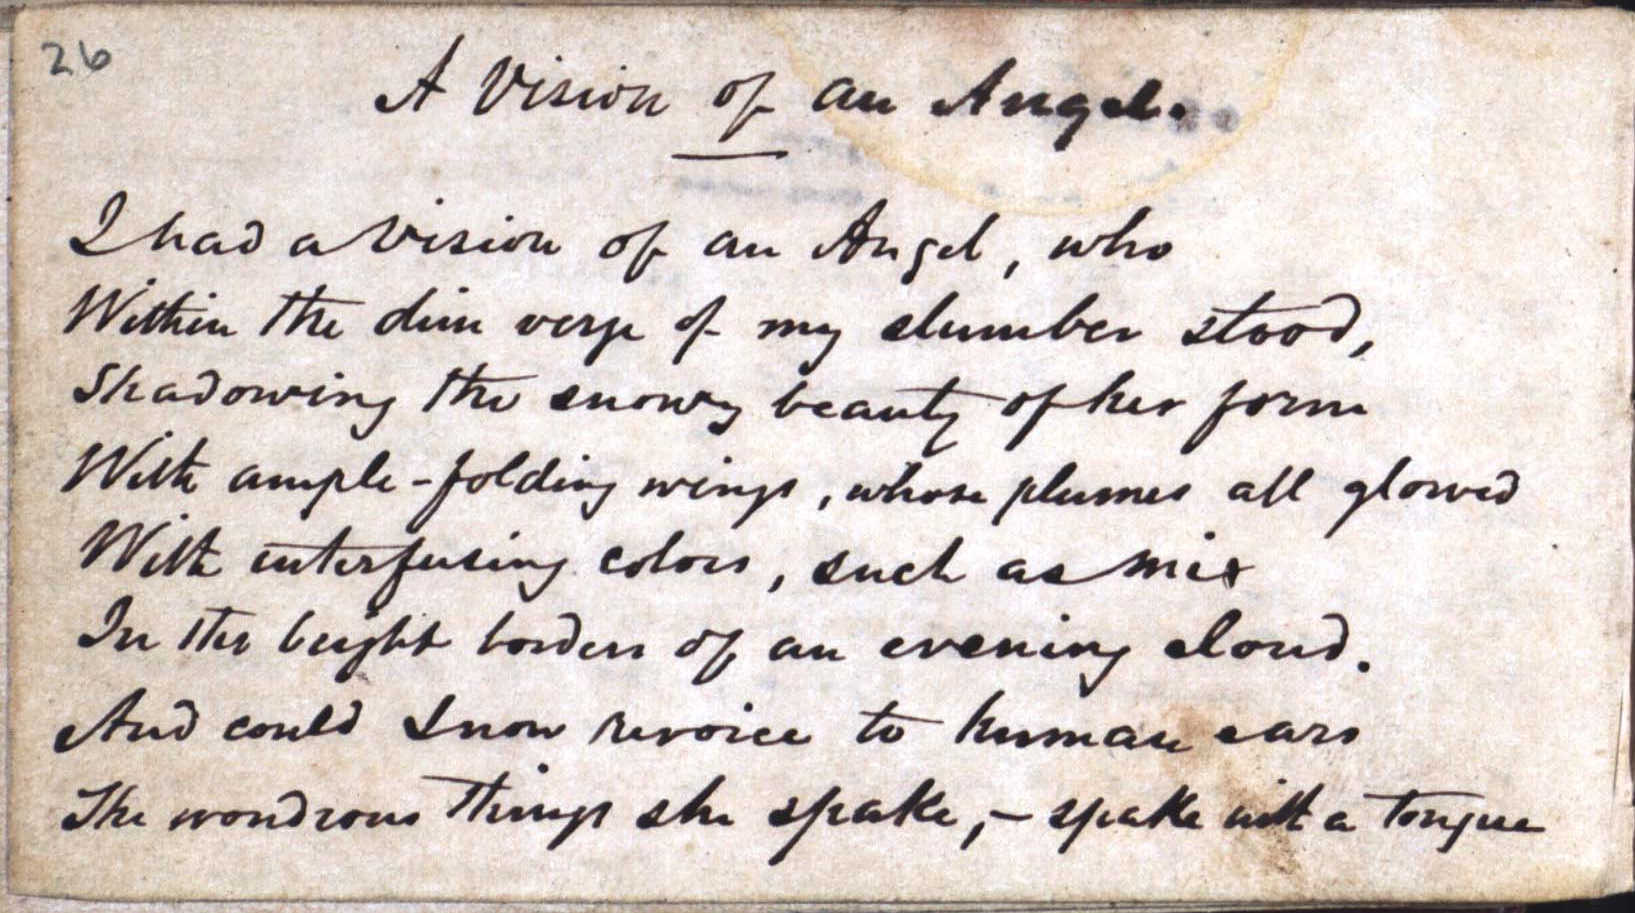 26
A Vision of an Angel.
I had a vision of an Angel, who
Within the dim verge of my slumber stood,
Shadowing the snowy beauty of her form
With ample-folding wings, whose plumes all glowed
With interfusing colors, such as mix
In the bright borders of an evening cloud.
And could I now revoice to human ears
The wondrous things she spake,—spake with a tongue